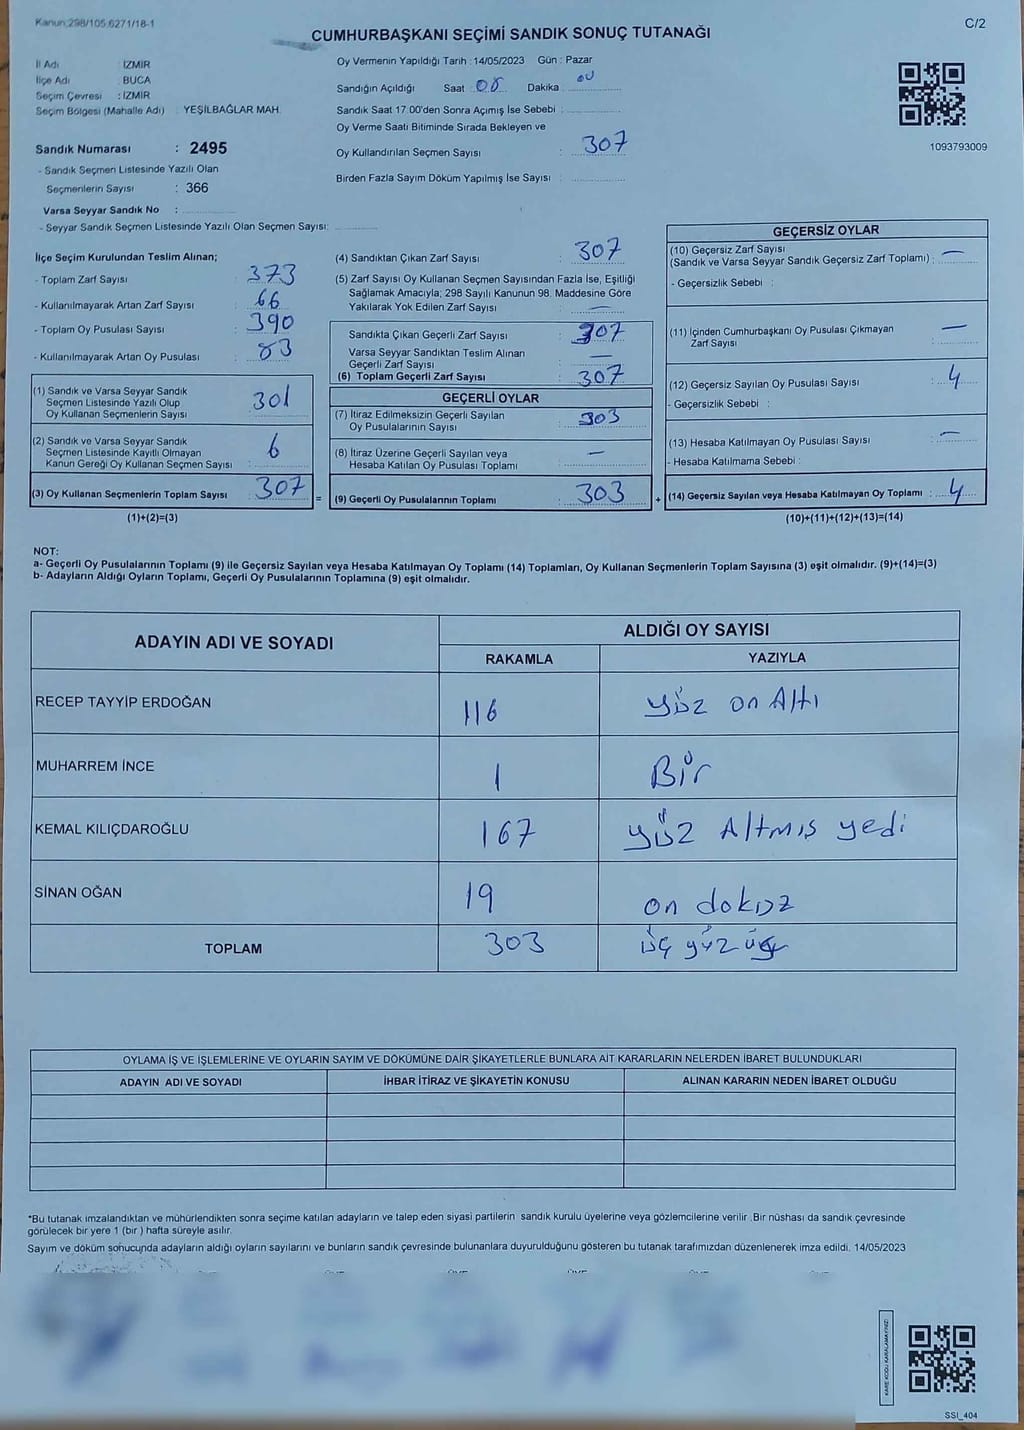 Kanun:298/105,6271/18-1
C/2
CUMHURBAŞKANI SEÇİMİ SANDIK SONUÇ TUTANAĞI
İl Adı : İZMİR
İlçe Adı : BUCA
Seçim Çevresi : İZMİR
Seçim Bölgesi (Mahalle Adı) : YEŞİLBAĞLAR MAH.
Oy Vermenin Yapıldığı Tarih : 14/05/2023 Gün : Pazar
Sandığın Açıldığı Saat 08 Dakika 00
Sandık Saat 17.00'den Sonra Açımış İse Sebebi :
Oy Verme Saati Bitiminde Sırada Bekleyen ve
Oy Kullandırılan Seçmen Sayısı : 307
Birden Fazla Sayım Döküm Yapılmış İse Sayısı :
1093793009
Sandık Numarası : 2495
- Sandık Seçmen Listesinde Yazılı Olan
Seçmenlerin Sayısı : 366
Varsa Seyyar Sandık No :
- Seyyar Sandık Seçmen Listesinde Yazılı Olan Seçmen Sayısı:
İlçe Seçim Kurulundan Teslim Alınan;
- Toplam Zarf Sayısı : 373
- Kullanılmayarak Artan Zarf Sayısı : 66
- Toplam Oy Pusulası Sayısı : 390
- Kullanılmayarak Artan Oy Pusulası : 83
(1) Sandık ve Varsa Seyyar Sandık
Seçmen Listesinde Yazılı Olup
Oy Kullanan Seçmenlerin Sayısı : 301
(2) Sandık ve Varsa Seyyar Sandık
Seçmen Listesinde Kayıtlı Olmayan
Kanun Gereği Oy Kullanan Seçmen Sayısı : 6
(3) Oy Kullanan Seçmenlerin Toplam Sayısı : 307 =
(1)+(2)=(3)
(4) Sandıktan Çıkan Zarf Sayısı : 307
(5) Zarf Sayısı Oy Kullanan Seçmen Sayısından Fazla İse, Eşitliği
Sağlamak Amacıyla; 298 Sayılı Kanunun 98. Maddesine Göre
Yakılarak Yok Edilen Zarf Sayısı : —
Sandıkta Çıkan Geçerli Zarf Sayısı : 307
Varsa Seyyar Sandıktan Teslim Alınan
Geçerli Zarf Sayısı : —
(6) Toplam Geçerli Zarf Sayısı : 307
GEÇERLİ OYLAR
(7) İtiraz Edilmeksizin Geçerli Sayılan
Oy Pusulalarının Sayısı : 303
(8) İtiraz Üzerine Geçerli Sayılan veya
Hesaba Katılan Oy Pusulası Toplamı : —
(9) Geçerli Oy Pusulalarının Toplamı : 303 +
GEÇERSİZ OYLAR
(10) Geçersiz Zarf Sayısı
(Sandık ve Varsa Seyyar Sandık Geçersiz Zarf Toplamı) : —
- Geçersizlik Sebebi :
(11) İçinden Cumhurbaşkanı Oy Pusulası Çıkmayan
Zarf Sayısı : —
(12) Geçersiz Sayılan Oy Pusulası Sayısı : 4
- Geçersizlik Sebebi :
(13) Hesaba Katılmayan Oy Pusulası Sayısı : —
- Hesaba Katılmama Sebebi :
(14) Geçersiz Sayılan veya Hesaba Katılmayan Oy Toplamı : 4
(10)+(11)+(12)+(13)=(14)
NOT:
a- Geçerli Oy Pusulalarının Toplamı (9) ile Geçersiz Sayılan veya Hesaba Katılmayan Oy Toplamı (14) Toplamları, Oy Kullanan Seçmenlerin Toplam Sayısına (3) eşit olmalıdır. (9)+(14)=(3)
b- Adayların Aldığı Oyların Toplamı, Geçerli Oy Pusulalarının Toplamına (9) eşit olmalıdır.
ADAYIN ADI VE SOYADI ALDIĞI OY SAYISI
RAKAMLA YAZIYLA
RECEP TAYYİP ERDOĞAN 116 yüz on Altı
MUHARREM İNCE 1 Bir
KEMAL KILIÇDAROĞLU 167 yüz Altmış yedi
SİNAN OĞAN 19 on dokuz
TOPLAM 303 üç yüz üç
OYLAMA İŞ VE İŞLEMLERİNE VE OYLARIN SAYIM VE DÖKÜMÜNE DAİR ŞİKAYETLERLE BUNLARA AİT KARARLARIN NELERDEN İBARET BULUNDUKLARI
ADAYIN ADI VE SOYADI İHBAR İTİRAZ VE ŞİKAYETİN KONUSU ALINAN KARARIN NEDEN İBARET OLDUĞU
*Bu tutanak imzalandıktan ve mühürlendikten sonra seçime katılan adayların ve talep eden siyasi partilerin sandık kurulu üyelerine veya gözlemcilerine verilir. Bir nüshası da sandık çevresinde
görülecek bir yere 1 (bir) hafta süreyle asılır.
Sayım ve döküm sonucunda adayların aldığı oyların sayılarını ve bunların sandık çevresinde bulunanlara duyurulduğunu gösteren bu tutanak tarafımızdan düzenlenerek imza edildi. 14/05/2023
KARE KODU KARALAMAYINIZ!
SSI_404